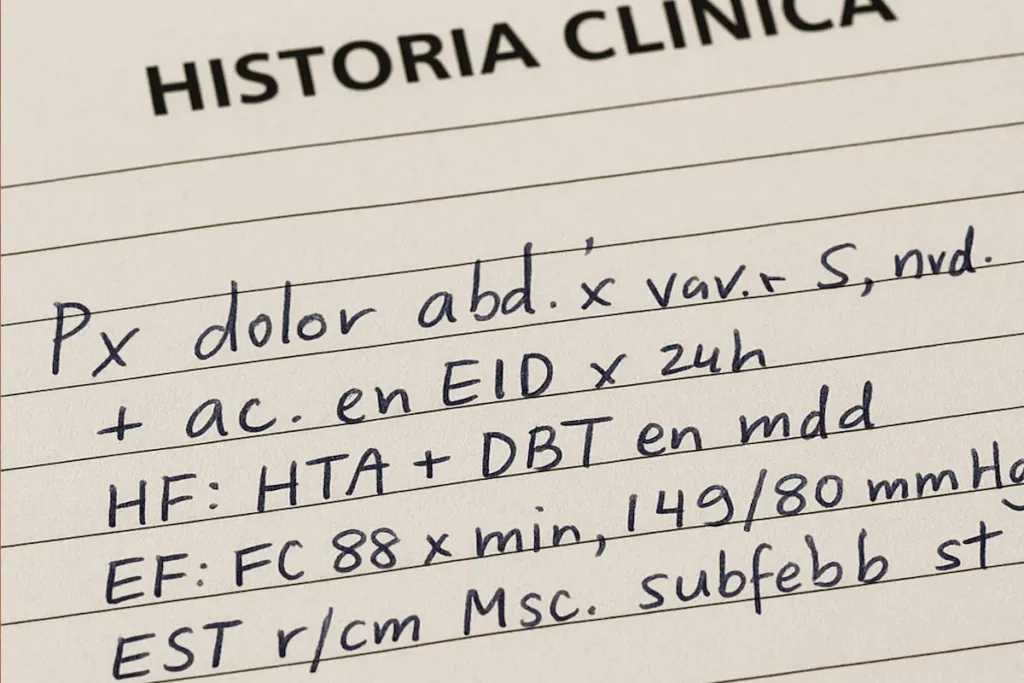 HISTORIA CLÍNICA
Px dolor abd. x vav.r S, nvd.
+ ac. en EID x 24h
HF: HTA + DBT en mdd
EF: FC 88 x min, 149/80 mmHg
EST r/cm Msc. subfebb st